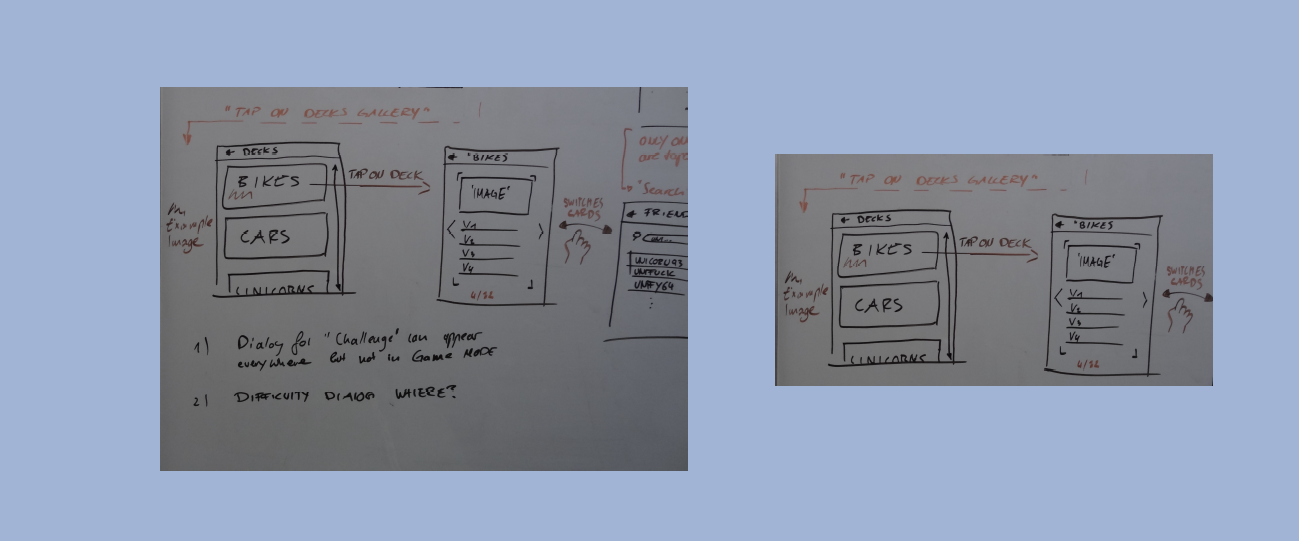 "TAP ON DECKS GALLERY"
← DECKS
BIKES
CARS
UNICORNS
Example
Image
TAP ON DECK
← "BIKES
'IMAGE'
V1
V2
V3
V4
4/32
SWITCHES
CARDS
ONLY ON
are tape
"Search
← FRIEND
UNICORN93
UNFFUCK
UNFFY64
1) Dialog for "Challenge" can appear
everywhere but not in Game MODE
2) DIFFICUITY DIALOG WHERE?
"TAP ON DECKS GALLERY"
← DECKS
BIKES
CARS
UNICORNS
Example
Image
TAP ON DECK
← "BIKES
'IMAGE'
V1
V2
V3
V4
4/32
SWITCHES
CARDS